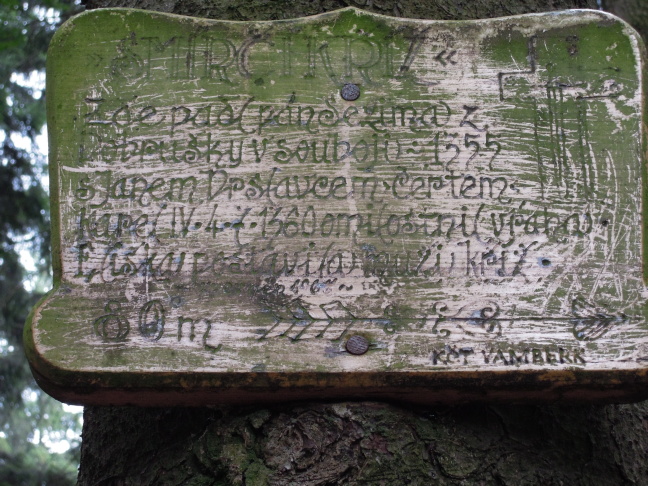 »SMÍRČÍ KŘÍŽ«
Zde padl pán Sezima z
Dobrušky v souboji 1355
s Janem Drslavcem Čertem.
Karel IV. 4. 7. 1360 omilostnil vraha
Eliška postavila kříž
80 m
KČT VAMBERK